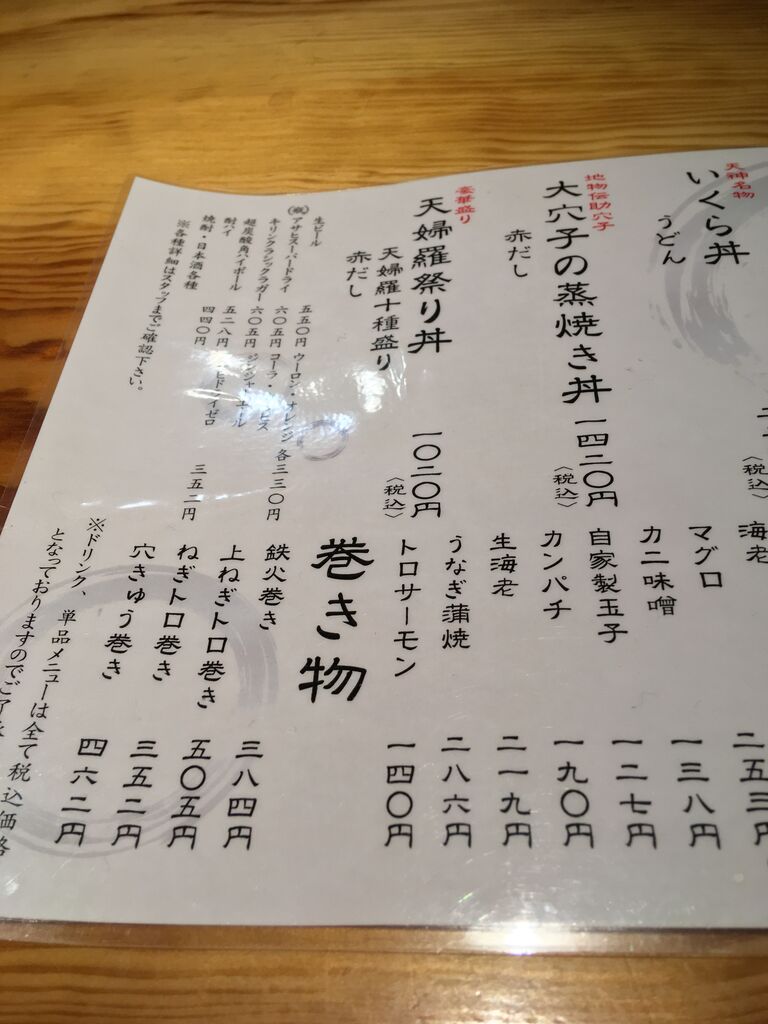 天神名物
いくら丼
うどん
地物伝助穴子
大穴子の蒸焼き丼
一四二〇円
〈税込〉
赤だし
豪華盛り
天婦羅祭り丼
一〇二〇円
〈税込〉
天婦羅十種盛り
赤だし
生ビール 五五〇円
アサヒスーパードライ 六〇五円
キリンクラシックラガー 六〇五円
超炭酸角ハイボール 五二八円
酎ハイ 四四〇円
焼酎・日本酒各種
※各種詳細はスタッフまでご確認下さい。
ウーロン・オレンジ
コーラ・
ジンジャーエール
各三三〇円
三五二円
海老 二五三円
マグロ 一三八円
カニ味噌 一二七円
自家製玉子 一九〇円
カンパチ 二一九円
生海老 二八六円
うなぎ蒲焼 一四〇円
トロサーモン
巻き物
鉄火巻き 三八四円
上ねぎトロ巻き 五〇五円
ねぎトロ巻き 三五二円
穴きゅう巻き 四六二円
※ドリンク、単品メニューは全て税込価格
となっておりますのでご了承